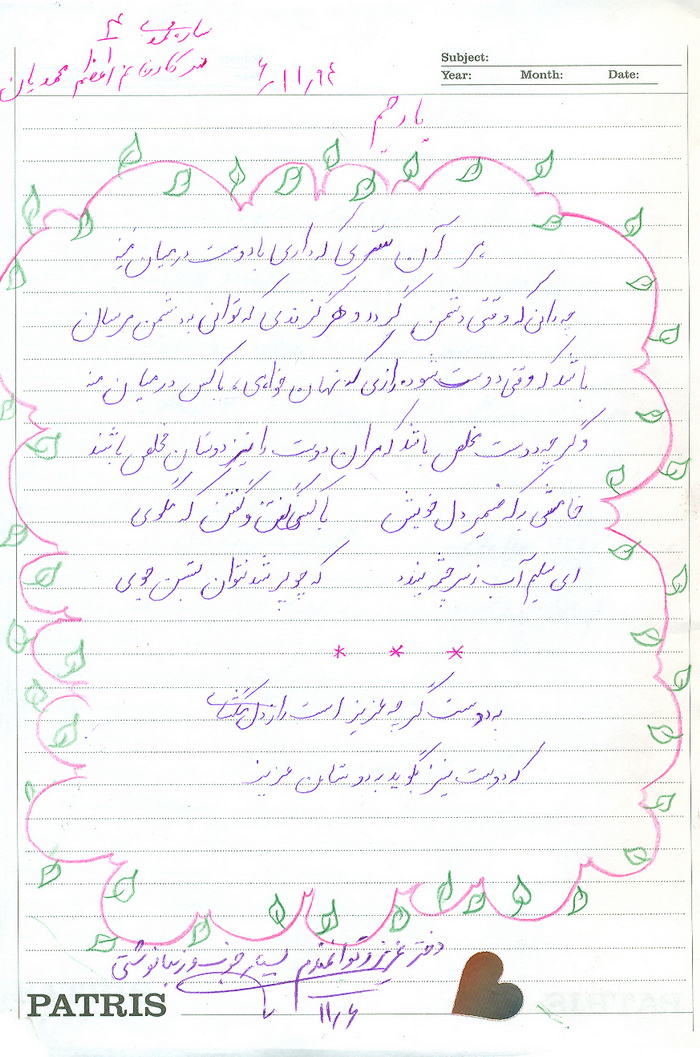 Subject:
Year: Month: Date:
۶/۱۱/۹۴
یا رحیم
هر آن سری که داری با دوست در میان منه
چه دانی که وقتی دشمن گردد و هر گزندی که توانی به دشمن مرسان
باشد که وقتی دوست شود، رازی که نهان خواهی، با کس در میان منه
وگر چه دوست مخلص باشد که مران دوست را نیز دوستان مخلص باشند
خامشی به که ضمیر دل خویش با کسی گفتن و گفتن که مگوی
ای سلیم آب ز سرچشمه ببند که چو پر شد نتوان بستن جوی
* * *
به دوست گرچه عزیز است راز دل مگشای
که دوست نیز بگوید به دوستان عزیز
دختر عزیز و توانمندم بسیار خوب و زیبا نوشتی
۱۱/۶
PATRIS